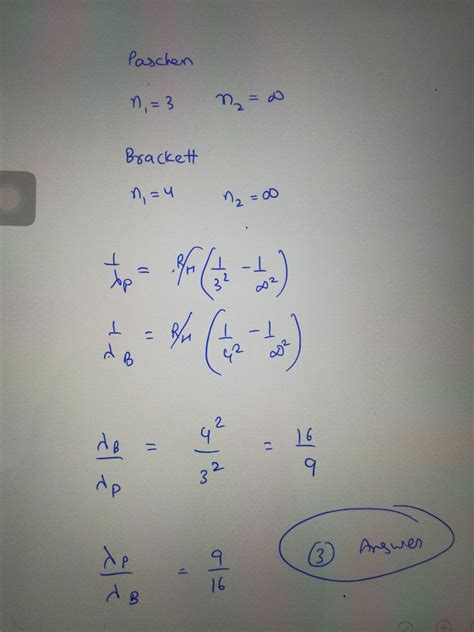 Paschen
n₁ = 3 n₂ = ∞
Brackett
n₁ = 4 n₂ = ∞
1/λP = RH (1/3² - 1/∞²)
1/λB = RH (1/4² - 1/∞²)
λB/λP = 4²/3² = 16/9
λP/λB = 9/16
(3) Answer